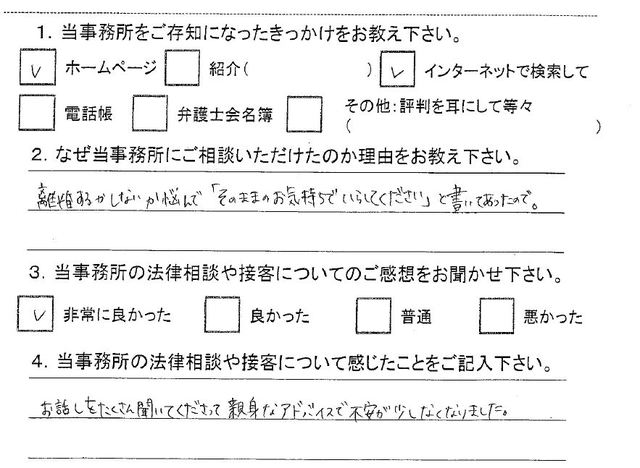 1. 当事務所をご存知になったきっかけをお教え下さい。
ホームページ 紹介( ) インターネットで検索して
電話帳 弁護士会名簿 その他:評判を耳にして等々
( )
2. なぜ当事務所にご相談いただけたのか理由をお教え下さい。
離婚するかしないか悩んで「そのままのお気持ちでいらしてください」と書いてあったので。
3. 当事務所の法律相談や接客についてのご感想をお聞かせ下さい。
非常に良かった 良かった 普通 悪かった
4. 当事務所の法律相談や接客について感じたことをご記入下さい。
お話しをたくさん聞いてくださって親身なアドバイスで不安が少しなくなりました。